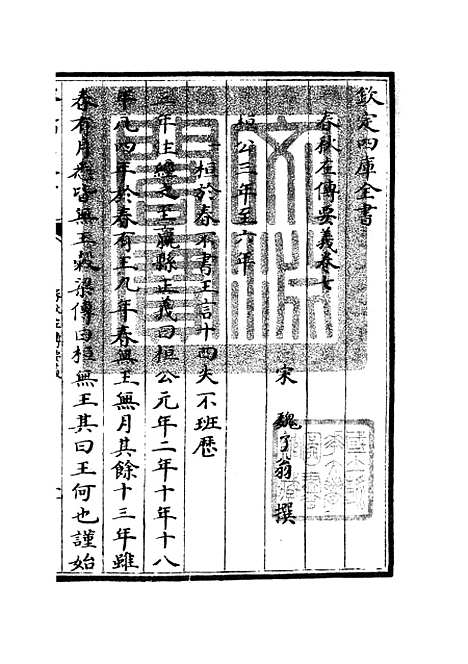 欽定四庫全書
春秋左傳要義卷七
宋 魏了翁 撰
桓公三年至六年
一 桓於春不書王言十四失不班歷
三年注經之王嬴縣正義曰桓公元年二年十年十八
年凡四年於春有王九年春無王無月其餘十三年雖
春有月悉皆無王穀梁傳曰桓無王其曰王何也謹始